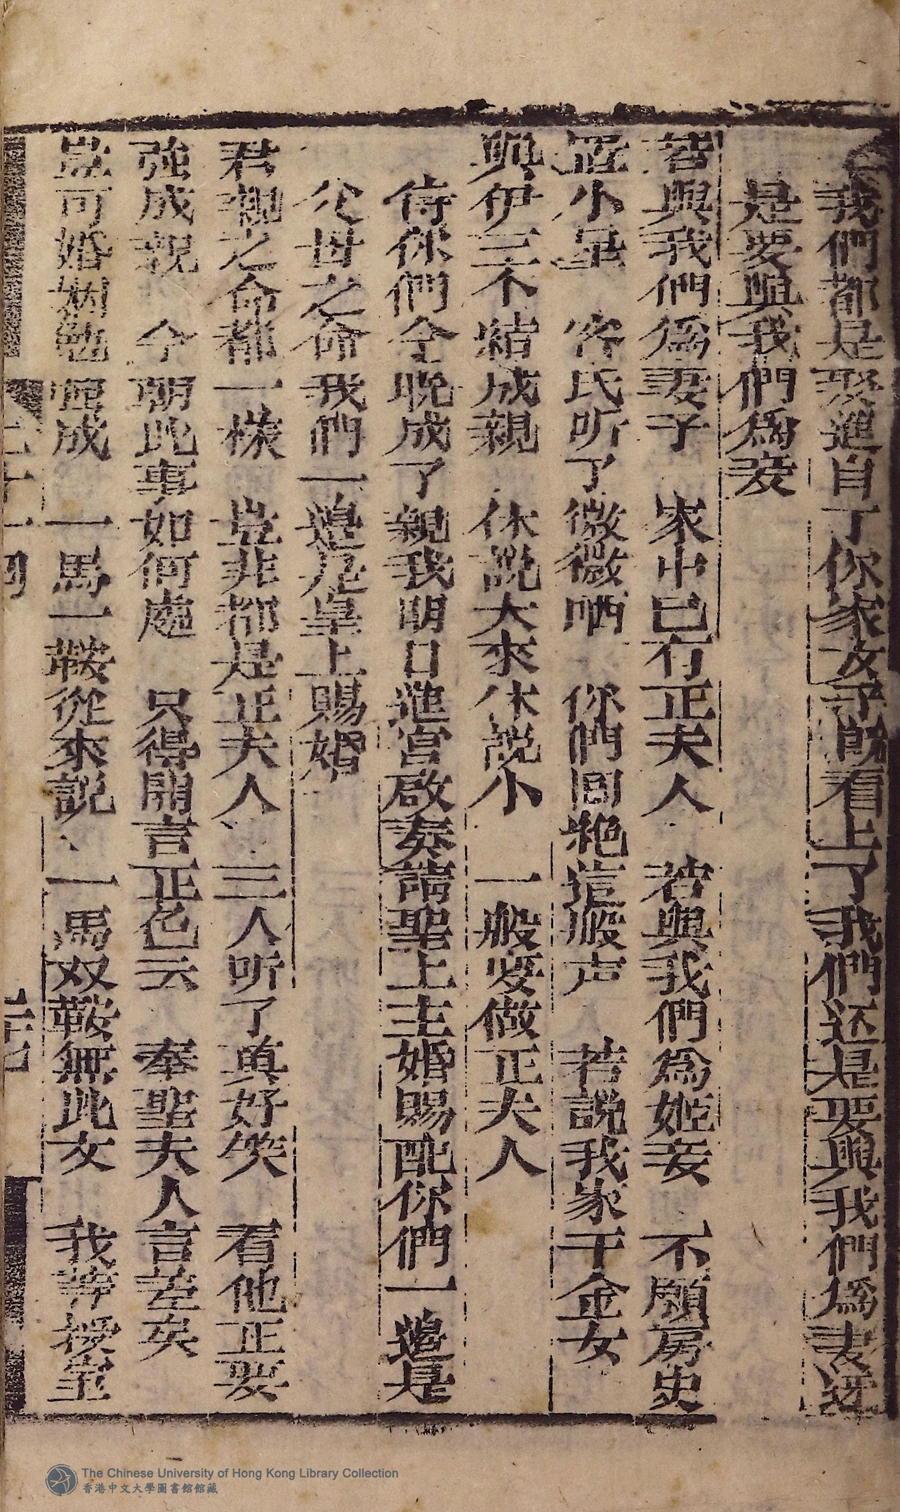 我們都是娶進自了你家女子既看上了我們还是要與我們為妻还
是要與我們為妾
若與我們為妻子　家中已有正夫人　若與我們為姬妾　不願房史
小星　客氏听了微微哂　你們固絶這般声　若說我家千金女
與伊三个結成親　休說大來休說小　一般要做正夫人
待你們今晚成了親我明日進宮啟奏請聖上主婚賜配你們一邊是
父母之命我們一邊是皇上賜婚
君親之命都一樣　豈非都是正夫人　三人听了真好笑　看他正要
強成親　今朝此事如何處　只得開言正色云　奉聖夫人言差矣
豈可婚姻勉強成　一馬一鞍從來說　一馬双鞍無此女　我等授室
香港中文大學圖書館館藏
The Chinese University of Hong Kong Library Collection